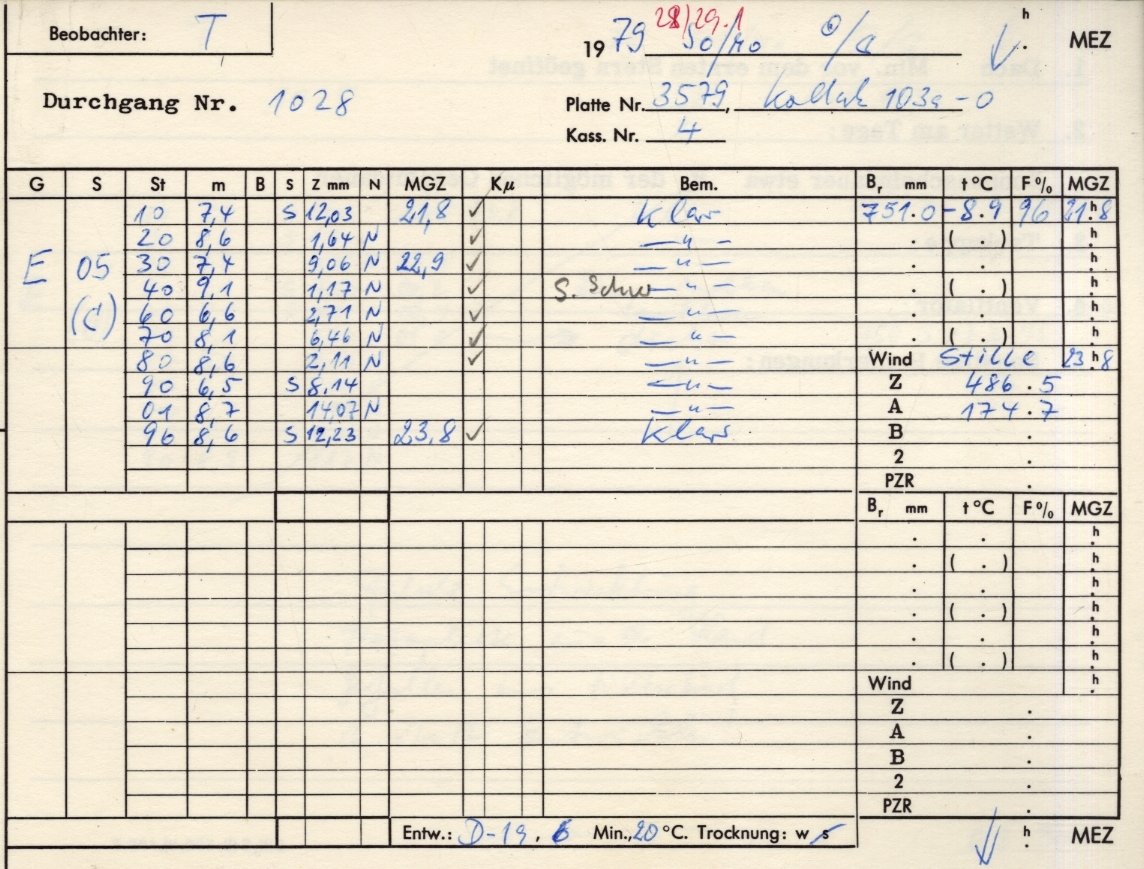 Beobachter: T
28/29.1
h
1979 50/40 0/a . MEZ
Durchgang Nr. 1028
Platte Nr. 3579, Kodak 103a-O
Kass. Nr. 4
G S St m B S Z mm N MGZ Kμ Bem. Br mm t°C F% MGZ
10 7,4 S 12,03 21,8 ✓ klar 751.0 -8.9 96 21.h8
20 8,6 1,64 N ✓ —"— . ( . ) h
E 05 30 7,4 9,06 N 22,9 ✓ —"— . . h
40 9,1 1,17 N ✓ S. Schw —"— . ( . ) h
(C) 60 6,6 2,71 N ✓ —"— . . h
70 8,1 6,46 N ✓ —"— . ( . ) h
80 8,6 2,11 N ✓ —"— Wind Stille 23.h8
90 6,5 S 8,14 —"— Z 486.5
01 8,7 14,07 N —"— A 174.7
96 8,6 S 12,23 23,8 ✓ klar B .
2 .
PZR .
Br mm t°C F% MGZ
. . h
. ( . ) h
. . h
. ( . ) h
. . h
. ( . ) h
Wind h
Z .
A .
B .
2 .
PZR .
Entw.: D-19, 6 Min., 20 °C. Trocknung: w s h. MEZ